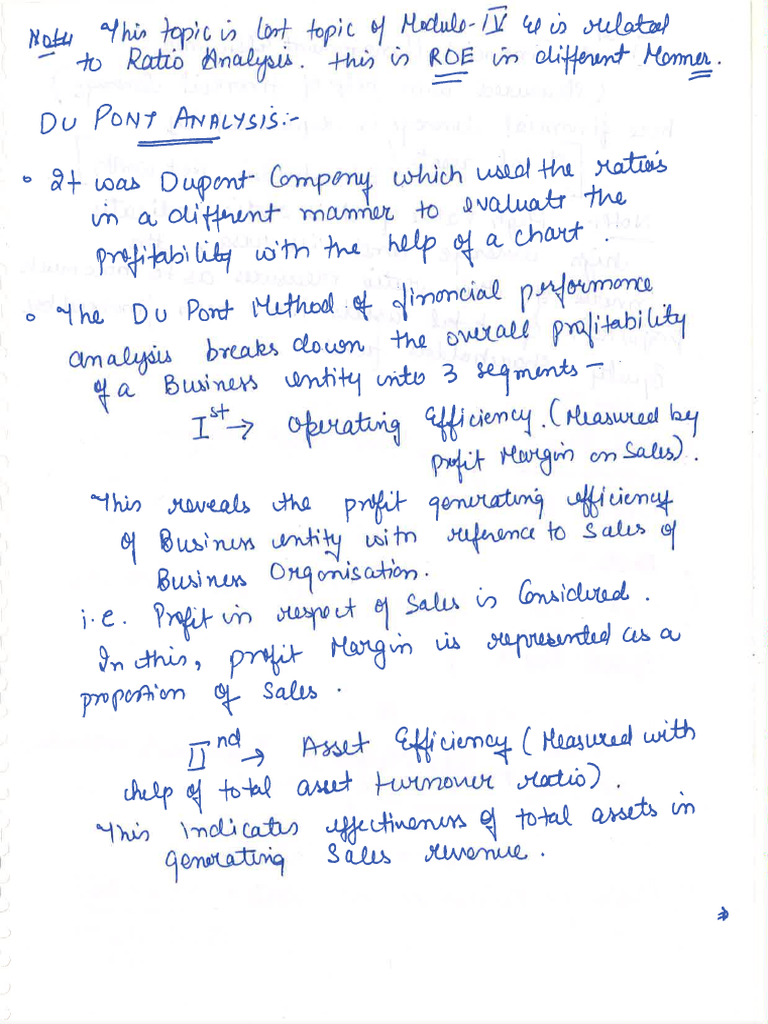 Note: This topic is last topic of Module-IV & is related
to Ratio Analysis. this is ROE in different Manner.
DU PONT ANALYSIS:-
• It was Dupont Company which used the ratios
in a different manner to evaluate the
profitability with the help of a chart.
• The Du Pont Method of financial performance
analysis breaks down the overall profitability
of a Business entity into 3 segments –
Ist → Operating Efficiency. (Measured by
profit Margin on Sales).
This reveals the profit generating efficiency
of Business entity with reference to Sales of
Business Organisation.
i.e. Profit in respect of Sales is Considered.
In this, profit Margin is represented as a
proportion of Sales.
IInd → Asset Efficiency (Measured with
help of total asset turnover ratio).
This indicates effectiveness of total assets in
generating Sales revenue.